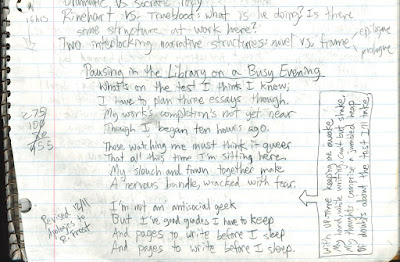 Dramatic vs Socratic
Rinehart vs. Trueblood: what is he doing? Is there
some structure at work here?
Two interlocking narrative structures: novel vs. frame
epilogue
prologue
Pausing in the Library on a Busy Evening
What's on the test I think I know;
I have to plan three essays though.
My work's completion's not yet near
Though I began ten hours ago.
Those watching me must think it queer
That all this time I'm sitting here.
My slouch and frown together make
A nervous bundle, wracked with fear.
With up-time keeping me awake
My hand, while writing, can't but shake.
My thoughts comprise a jumbled heap
Of doubts about the test I'll take.
I'm not an antisocial geek
But I've good grades I have to keep
And pages to write before I sleep
And pages to write before I sleep.
Revised 12/11
Apologies to
R. Frost
275
100